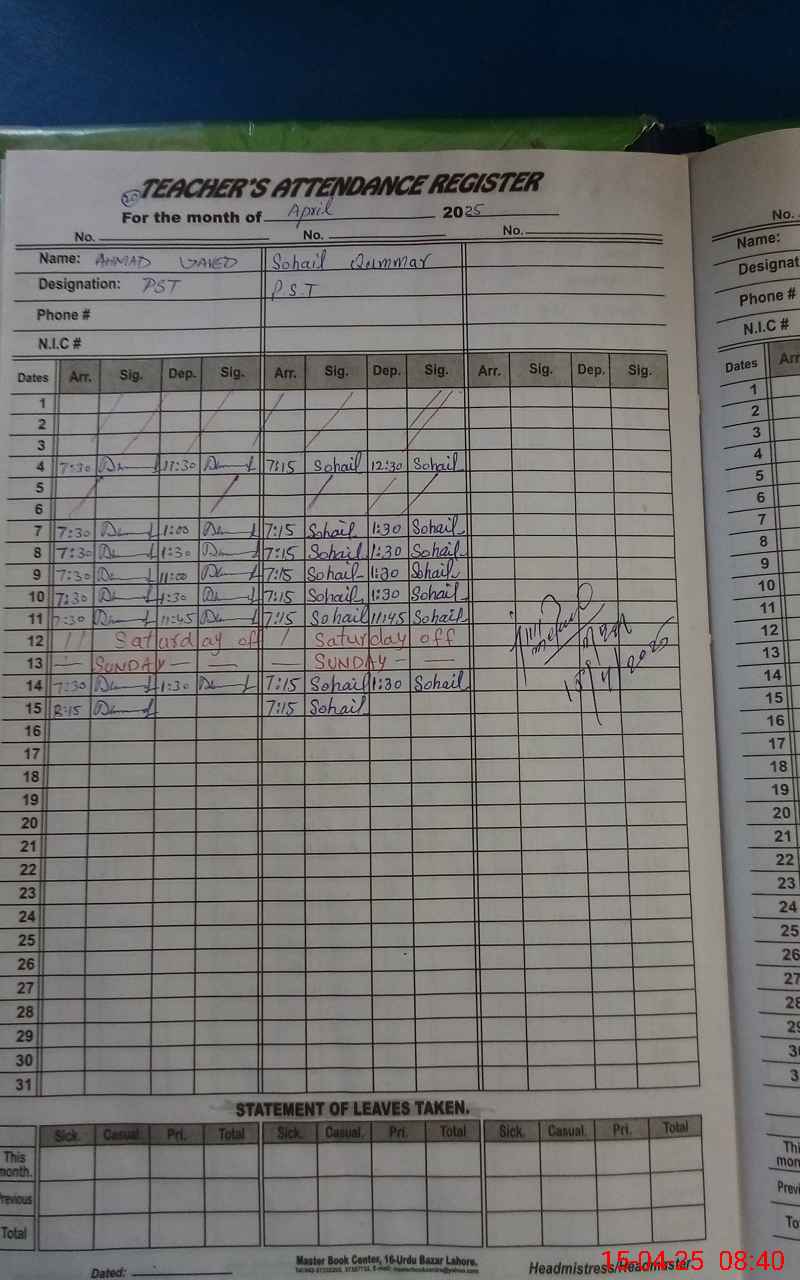 TEACHER'S ATTENDANCE REGISTER
For the month of April 2025
No. No. No.
Name: AHMAD JAVED Sohail Qummar
Designation: PST P.S.T
Phone #
N.I.C #
Dates Arr. Sig. Dep. Sig. Arr. Sig. Dep. Sig. Arr. Sig. Dep. Sig.
1
2
3
4 7:30 11:30 7:15 Sohail 12:30 Sohail
5
6
7 7:30 1:00 7:15 Sohail 1:30 Sohail
8 7:30 1:30 7:15 Sohail 1:30 Sohail
9 7:30 11:00 7:15 Sohail 1:30 Sohail
10 7:30 1:30 7:15 Sohail 1:30 Sohail
11 7:30 11:45 7:15 Sohail 11:45 Sohail
12 Saturday off Saturday off
13 SUNDAY SUNDAY
14 7:30 1:30 7:15 Sohail 1:30 Sohail
15 8:15 7:15 Sohail
15/4/2025
16
17
18
19
20
21
22
23
24
25
26
27
28
29
30
31
STATEMENT OF LEAVES TAKEN.
Sick. Casual. Pri. Total Sick. Casual. Pri. Total Sick. Casual. Pri. Total
This month.
Previous
Total
Dated:
Master Book Center, 16-Urdu Bazar Lahore.
Headmistress/Headmaster
No.
Name:
Designat
Phone #
N.I.C #
Dates Arr
1
2
3
4
5
6
7
8
9
10
11
12
13
14
15
16
17
18
19
20
21
22
23
24
25
26
27
28
29
30
3
Thi
mon
Previ
To
15-04-25 08:40